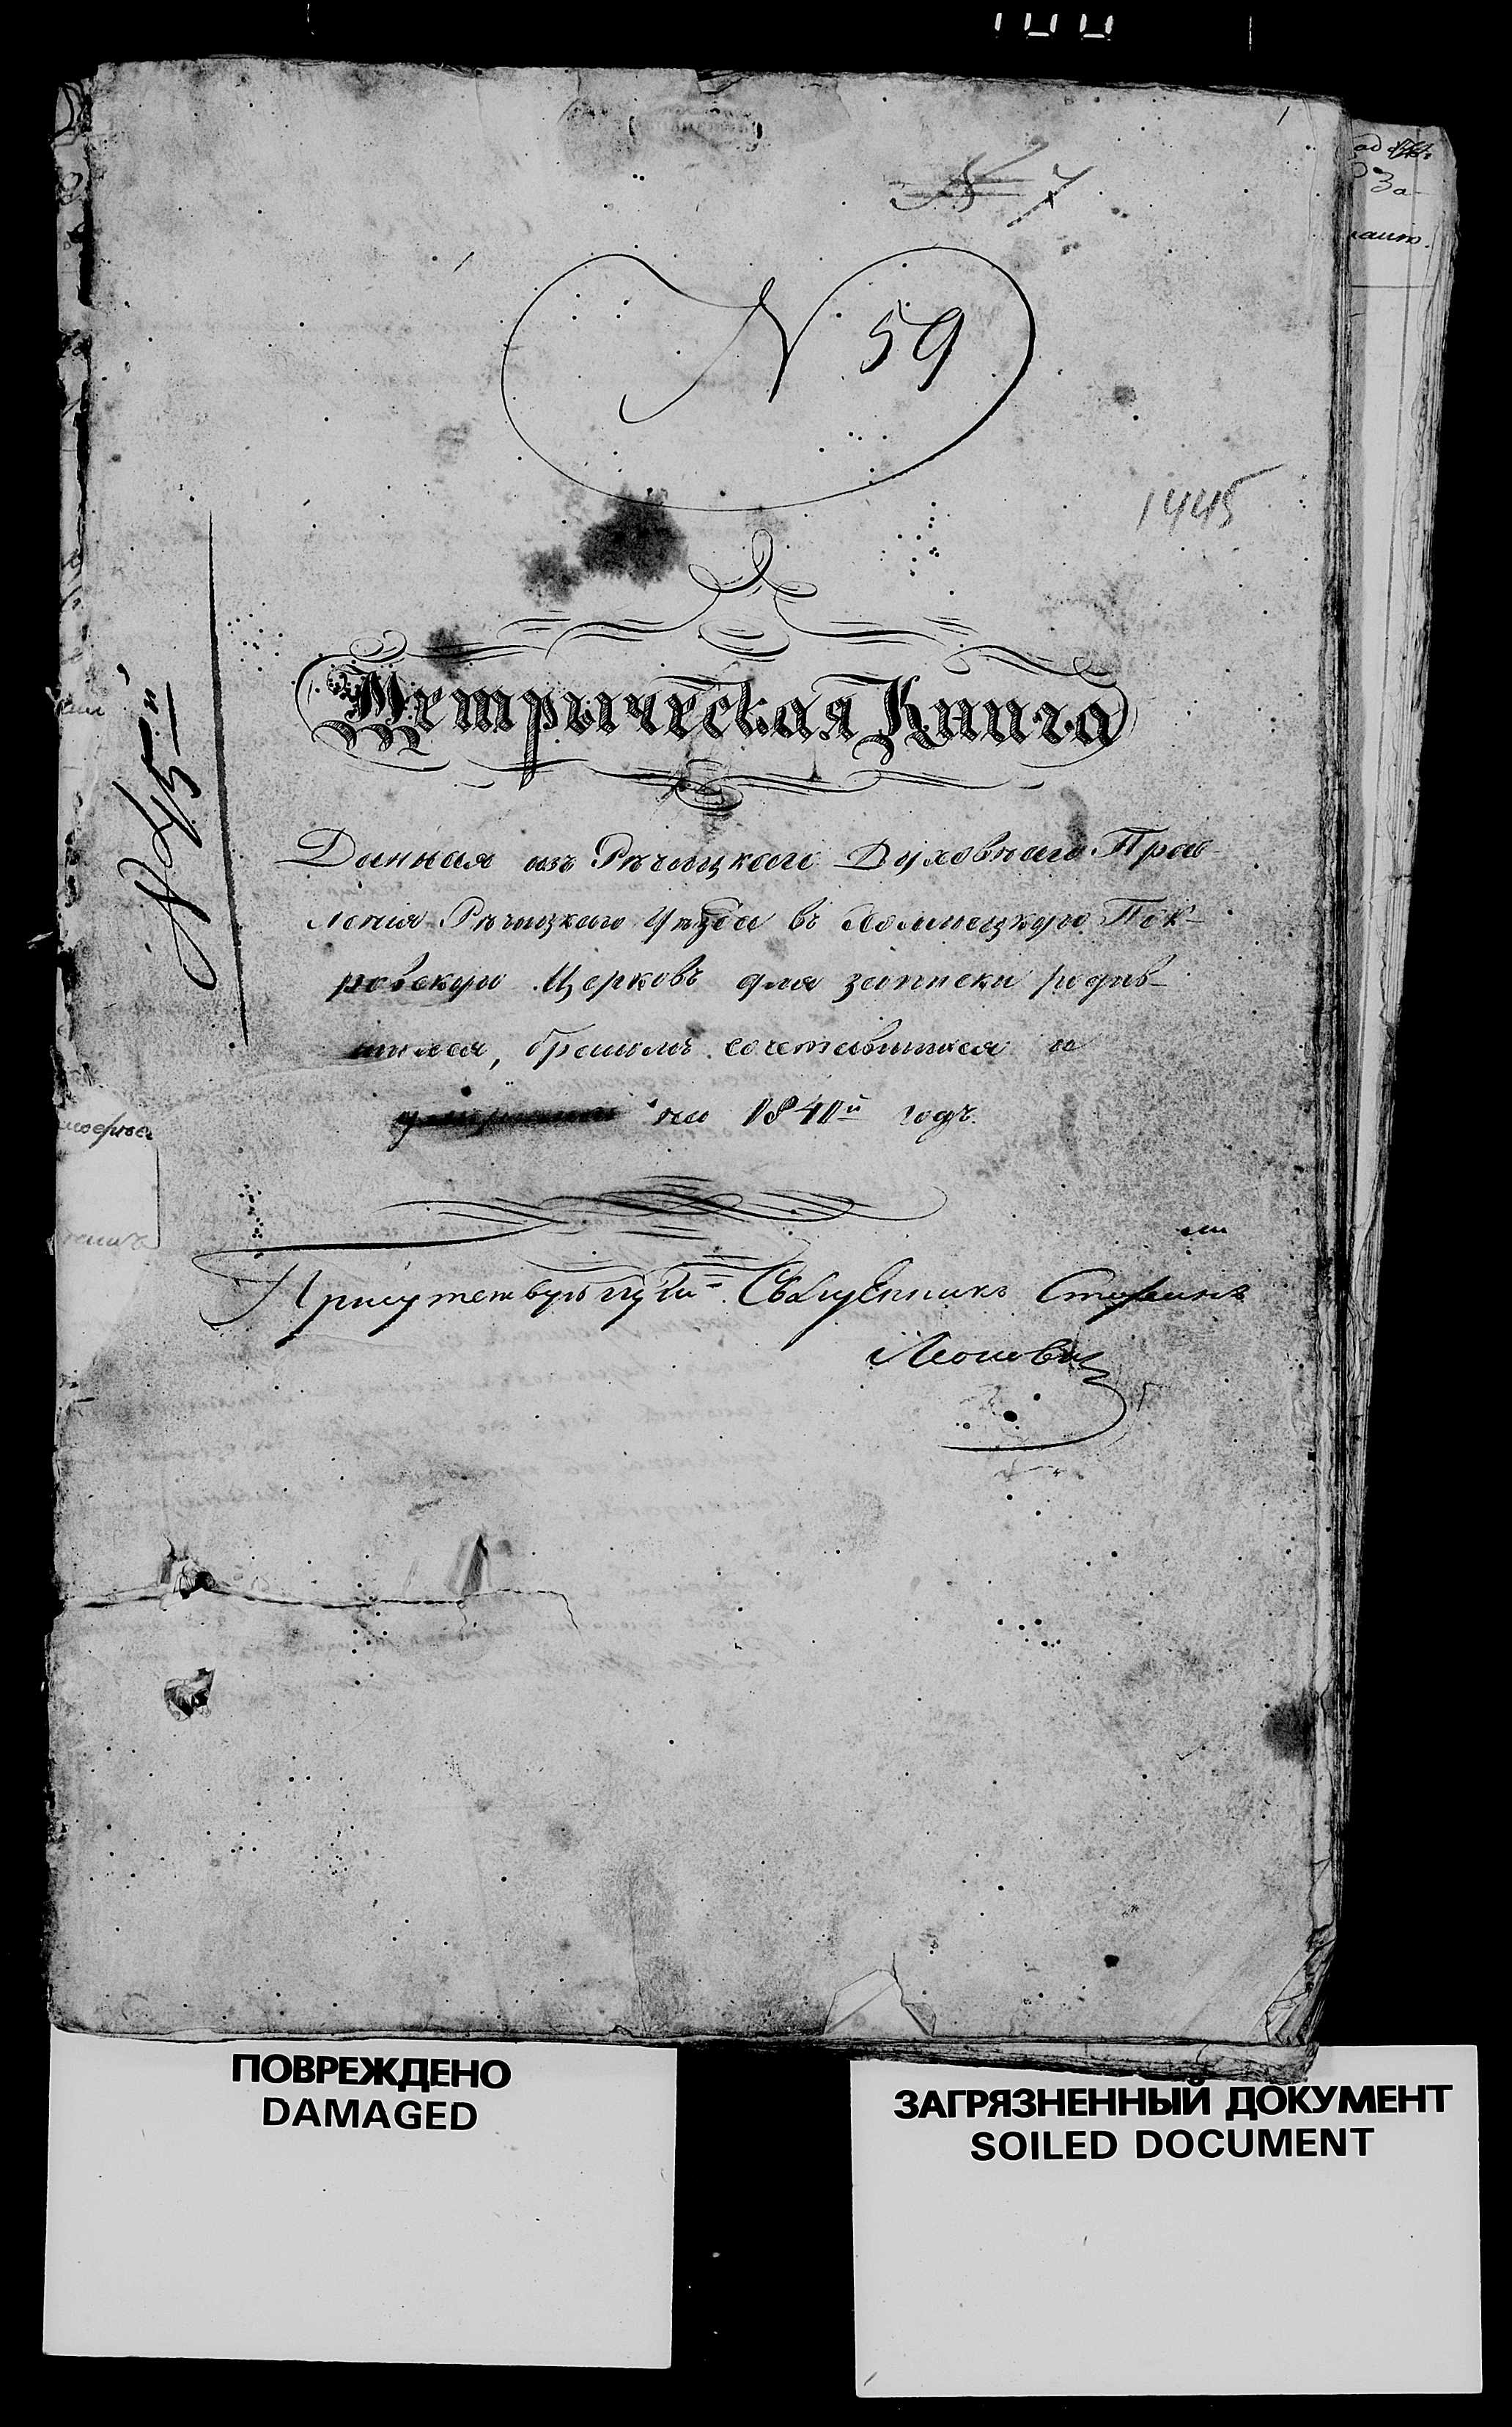 № 7
N 59
1445
№ 45й
Метрическая Книга
Данная изъ Рѣчицкаго Духовнаго Прав-
ленія Рѣчицкаго Уѣзда въ Холмецкую Пок-
ровскую Церковь для записки родив-
шихся, бракомъ сочетавшихся и
умершихъ на 1841й годъ.
Присутствующій Священникъ Стефанъ
ПОВРЕЖДЕНО
DAMAGED
ЗАГРЯЗНЕННЫЙ ДОКУМЕНТ
SOILED DOCUMENT